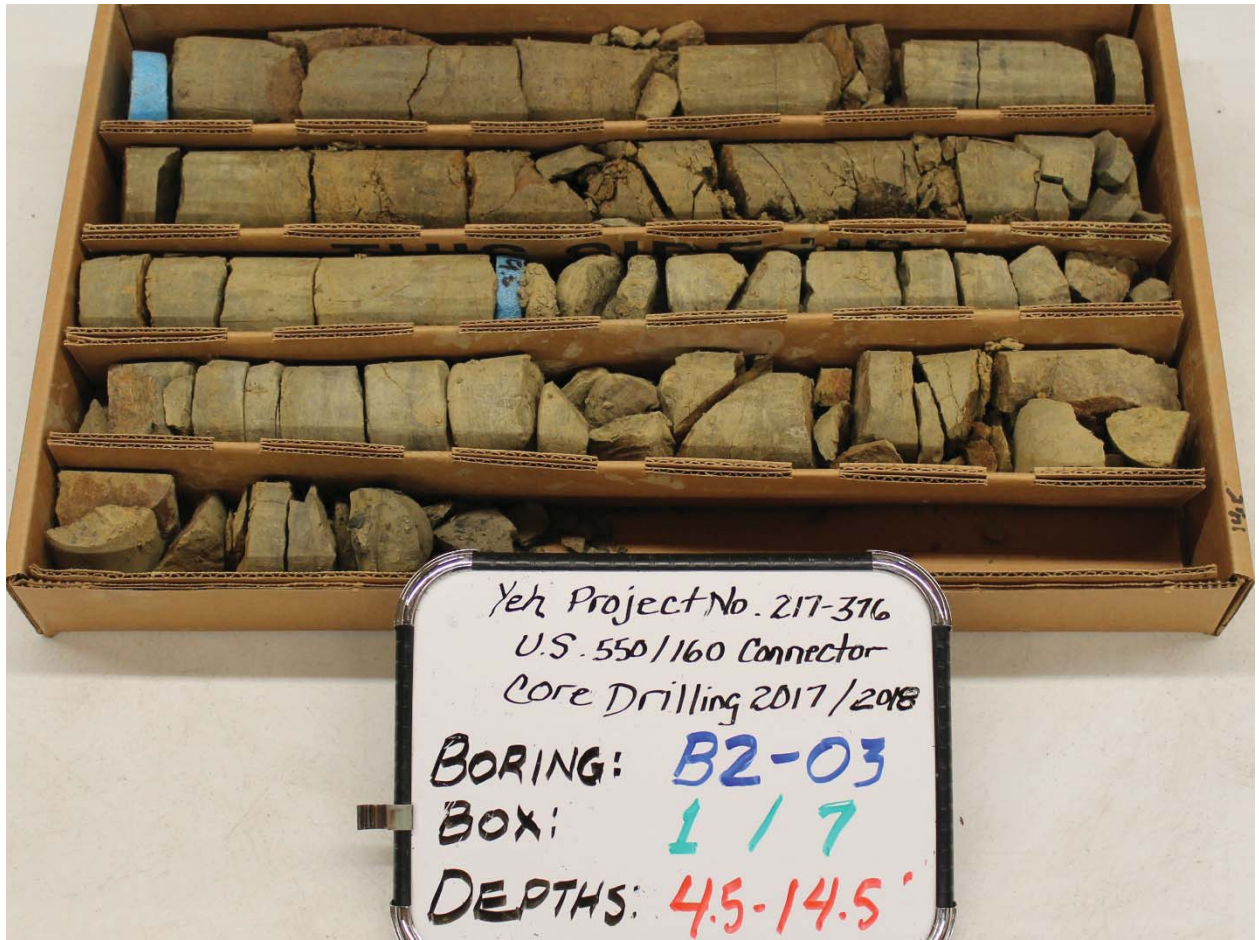 THIS SIDE UP
14.5
Yeh Project No. 217-376
U.S. 550/160 Connector
Core Drilling 2017/2018
BORING: B2-03
BOX: 1 / 7
DEPTHS: 4.5-14.5'